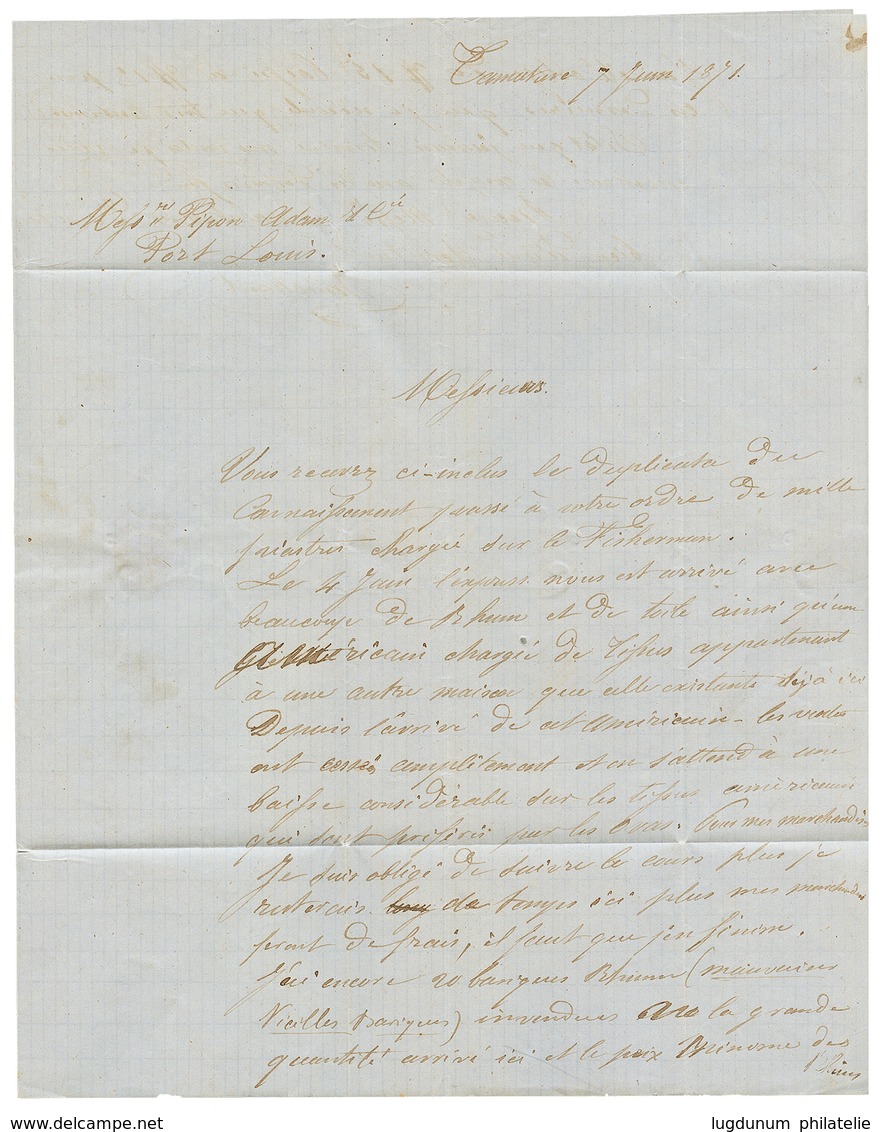 Tamatave 7 Juin 1871.
Mess rs Pipon Adam & Cie
Port Louis.
Messieurs.
Vous recevrez ci-inclus le duplicata du
Connaissement passé à votre ordre de mille
piastres chargée sur le Fisherman.
Le 4 Juin l'express nous est arrivé avec
beaucoup de Rhum et de toile ainsi qu'un
Américain chargée de tissus appartenant
à une autre maison que celle existante déjà ici
Depuis l'arrivé de cet Américain - les ventes
ont cessés complêtement et on s'attend à une
baisse considérable sur les tissus américains
qui sont préférés par les Ovas. mes marchandis-
Je suis obligé de suivre le cours plus je
resterais de temps ici plus mes marchandises
feront de frais, il faut que j'en finisse.
J'ai encore 20 bariques Rhum (mauvaises
Vieilles Bariques) invendues vu la grande
quantité arrivé ici et le prix minime des
Rhums
www.delcampe.net
lugdunum philatelie